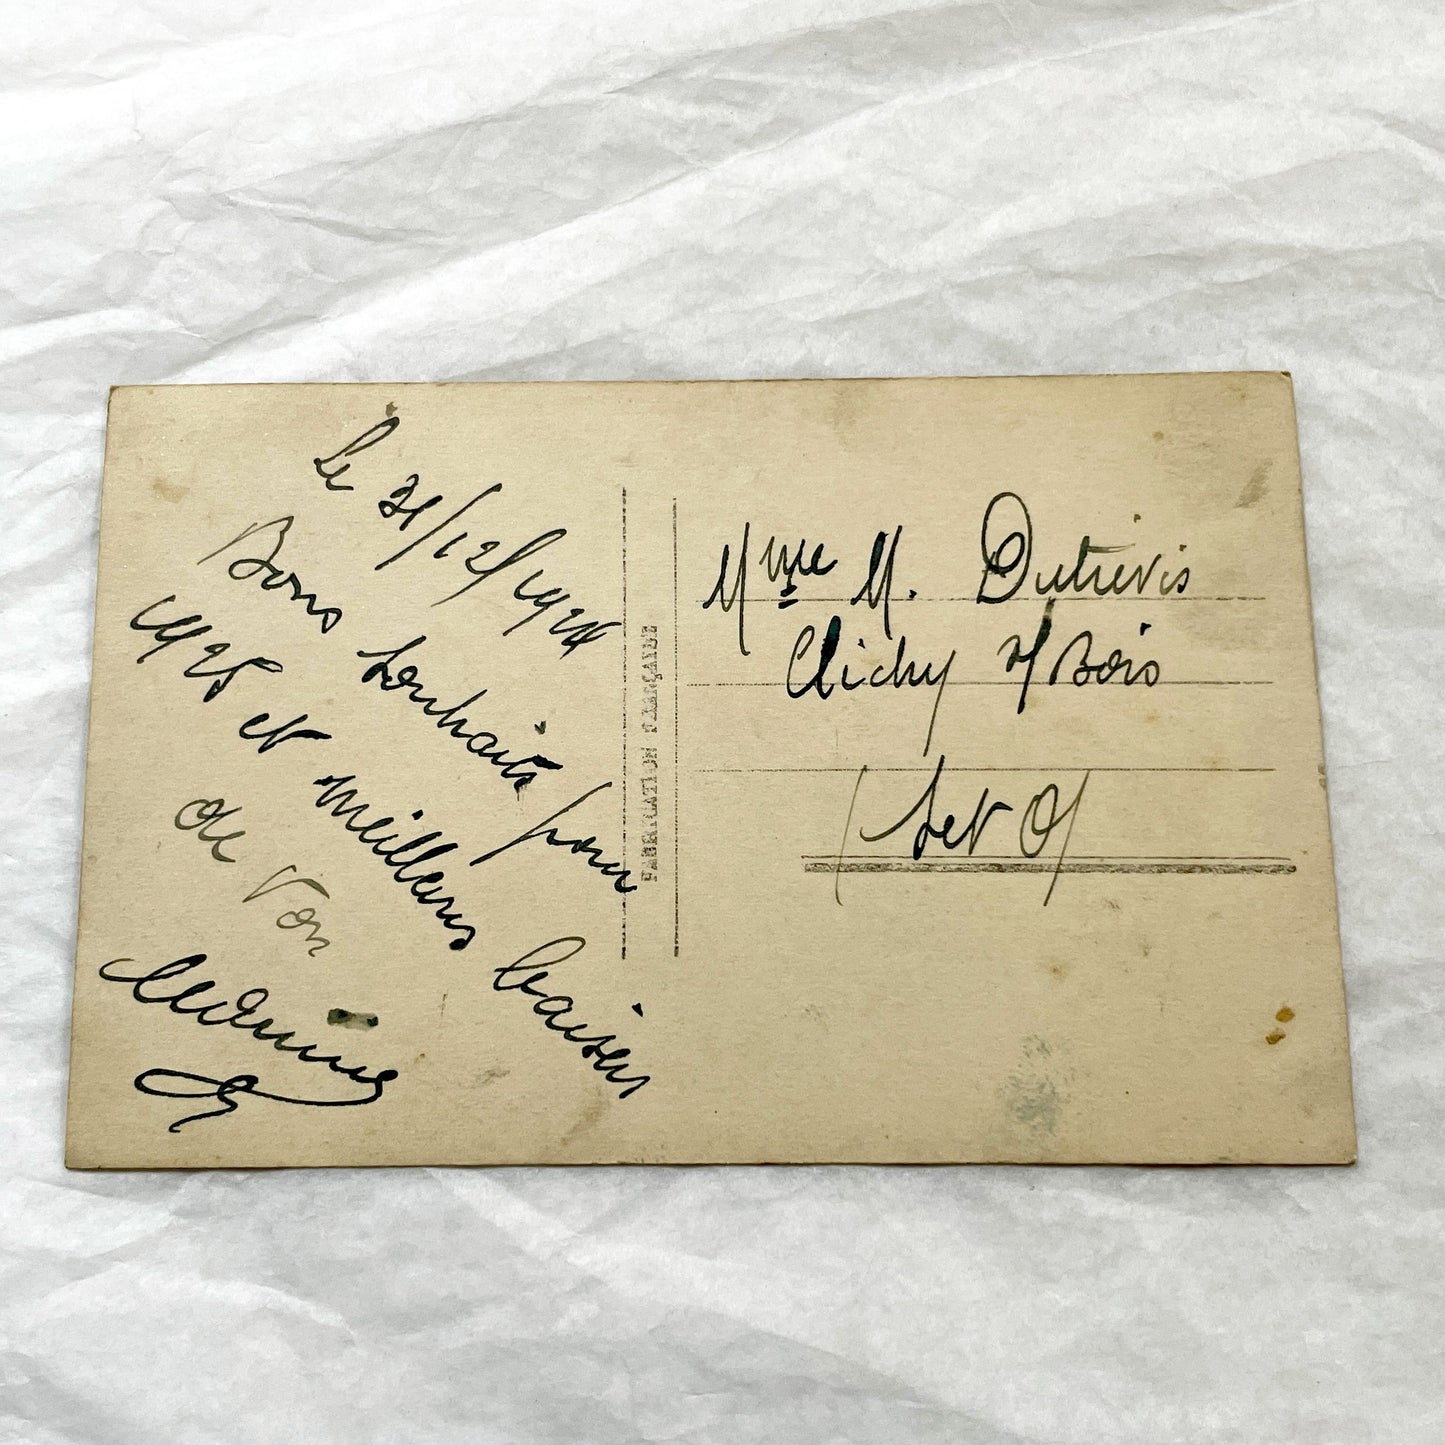 Le 31/12/1924
Bons souhaits pour
1925 et meilleurs baisers
de Von
FABRICATION FRANÇAISE
Mme M. Dutrévis
Clichy s/Bois
(Set O)